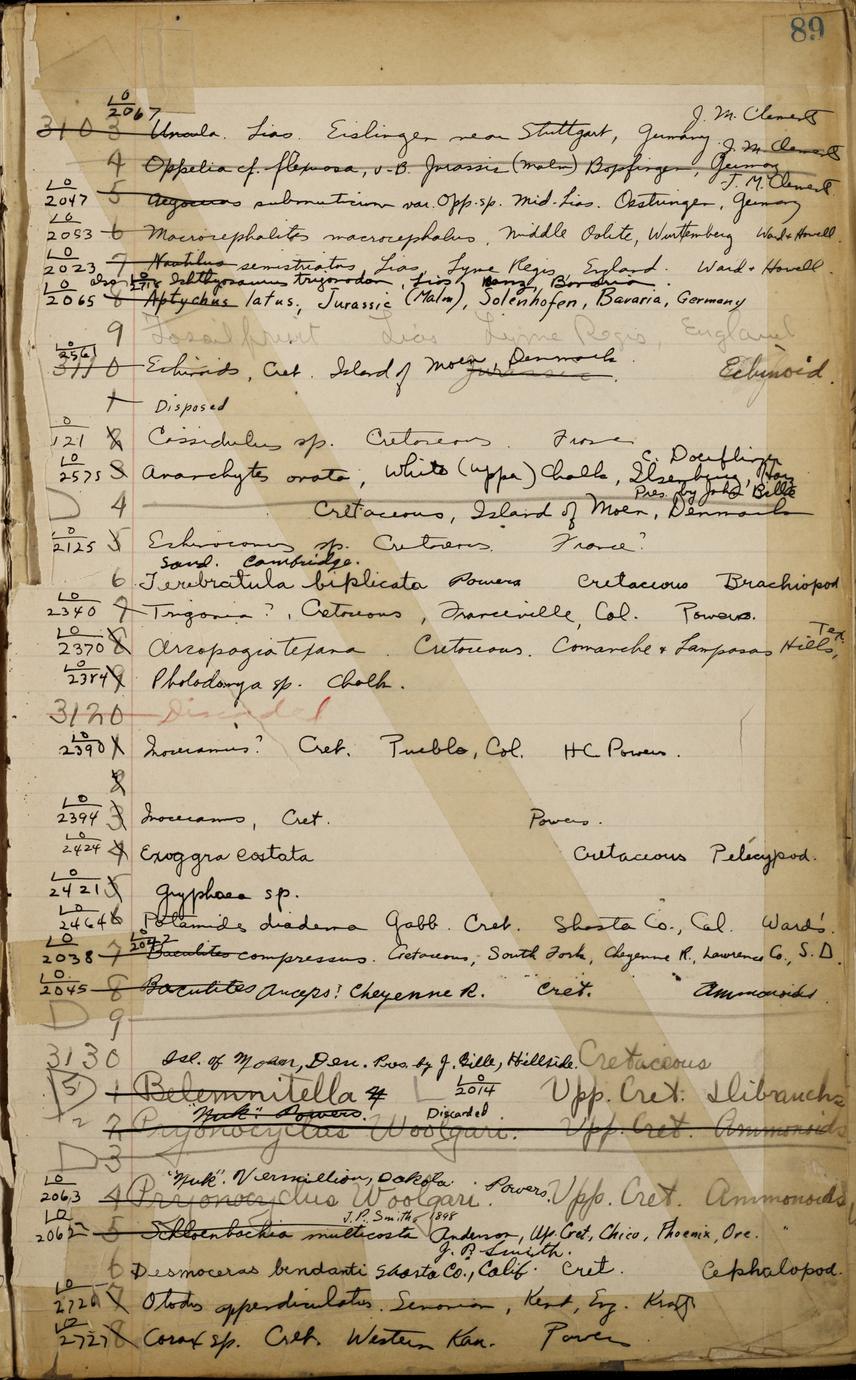 89
LO
2067 J. M. Clement
3103 Uncula. Lias. Eislingen near Stuttgart, Germany.
4 Oppelia cf. flexuosa, v. B. Jurassic (Malm) Bopfingen, Germany J. M. Clement
LO 2047 5 Aegoceras submuticum var. Opp. sp. Mid. Lias. Oestringen, Germany J. M. Clement
LO 2053 6 Macrocephalites macrocephalus, Middle Oolite, Wurttemberg Ward + Howell.
LO 2023 7 Nautilus semistriatus Lias, Lyme Regis, England. Ward + Howell.
also LO Ichthyosaurus trigonodon, Lias, Banz, Bavaria
LO 2065 8 Aptychus latus, Jurassic (Malm), Solenhofen, Bavaria, Germany
9 Fossil fruit Lias Lyme Regis, England
LO 2561
3110 Echinoids, Cret. Island of Moen, Denmark. Jurassic. Echinoid.
1 Disposed
LO 121 2 Cassidulus sp. Cretaceous. France
LO 2575 3 Ananchytes ovata, White (upper) Chalk, Ilsenburg, Harz C. Doerflinger
D 4 Cretaceous, Island of Moen, Denmark Pres. by John Bille
LO 2125 5 Echinoconus sp. Cretaceous. France?
Sand. Cambridge.
6 Terebratula biplicata Powers Cretaceous Brachiopod
LO 2340 7 Trigonia?, Cretaceous, Franceville, Col. Powers.
LO 2370 8 Arcopagia texana. Cretaceous. Comanche + Lampasas Hills, Tex.
LO 2384 9 Pholodomya sp. Chalk.
3120 Discarded
LO 2390 1 Inoceramus? Cret. Pueblo, Col. HC Powers.
2
LO 2394 3 Inoceramus, Cret. Powers.
LO 2424 4 Exoggra costata Cretaceous Pelecypod.
LO 2421 5 Gryphaea sp.
LO 2464 6 Potamides diadema Gabb. Cret. Shasta Co., Cal. Ward's.
LO 2038 7 LO 2042 Baculites compressus. Cretaceous, South Fork, Cheyenne R., Lawrence Co., S. D.
LO 2045 8 Baculites anceps? Cheyenne R. Cret. Ammonoids.
D 9
3130 Isl. of Moen, Den. Pres. by J. Bille, Hillside. Cretaceous
D 5 1 Belemnitella 4 LO 2014 Upp. Cret. Dibranchs
"Nuk". Powers. Discarded
2 2 Pryonocyclus Woolgari. Upp. Cret. Ammonoids
D 3
"Nuk". Vermillion, Dakota Powers.
LO 2063 4 Pryonocyclus Woolgari. Upp. Cret. Ammonoids
J. P. Smith, 1898
LO 2062 5 Schloenbachia multicosta Anderson, Up. Cret, Chico, Phoenix, Ore. "
J. P. Smith.
6 Desmoceras bendanti Shasta Co., Calif. Cret. Cephalopod.
LO 2726 7 Otodus appendiculatus. Senonian, Kent, Eng. Krantz
LO 2727 8 Corax sp. Cret. Western Kan. Powers